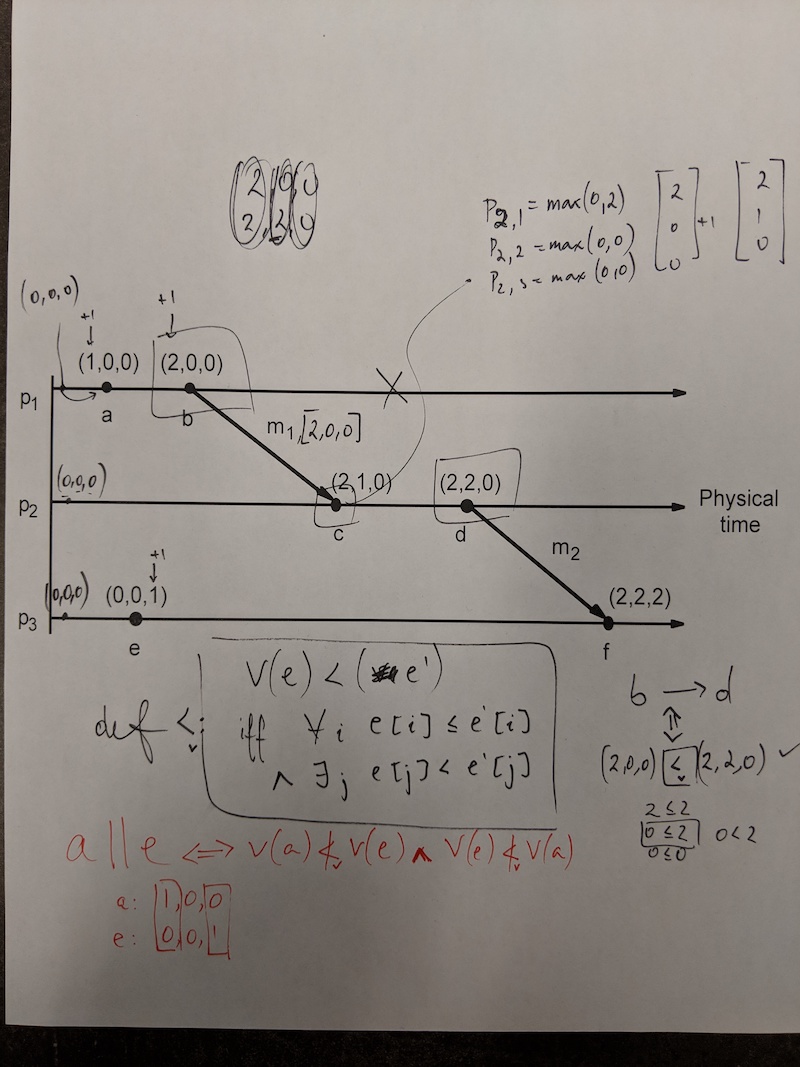 2 0 0
2 2 0
P2,1 = max(0,2)
P2,2 = max(0,0)
P2,3 = max(0,0)
[2 0 0] +1 [2 1 0]
(0,0,0)
+1
+1
(1,0,0)
(2,0,0)
p1
a
b
m1,[2,0,0]
(0,0,0)
(2,1,0)
(2,2,0)
p2
c
d
Physical
time
m2
+1
(0,0,0)
(0,0,1)
(2,2,2)
p3
e
f
V(e) < (e')
def <v:
iff ∀i e[i] ≤ e'[i]
∧ ∃j e[j] < e'[j]
b → d
⇕
(2,0,0) <v (2,2,0) ✓
2 ≤ 2
0 ≤ 2 0 < 2
0 ≤ 0
a || e ⟺ V(a) ≮v V(e) ∧ V(e) ≮v V(a)
a: 1,0,0
e: 0,0,1